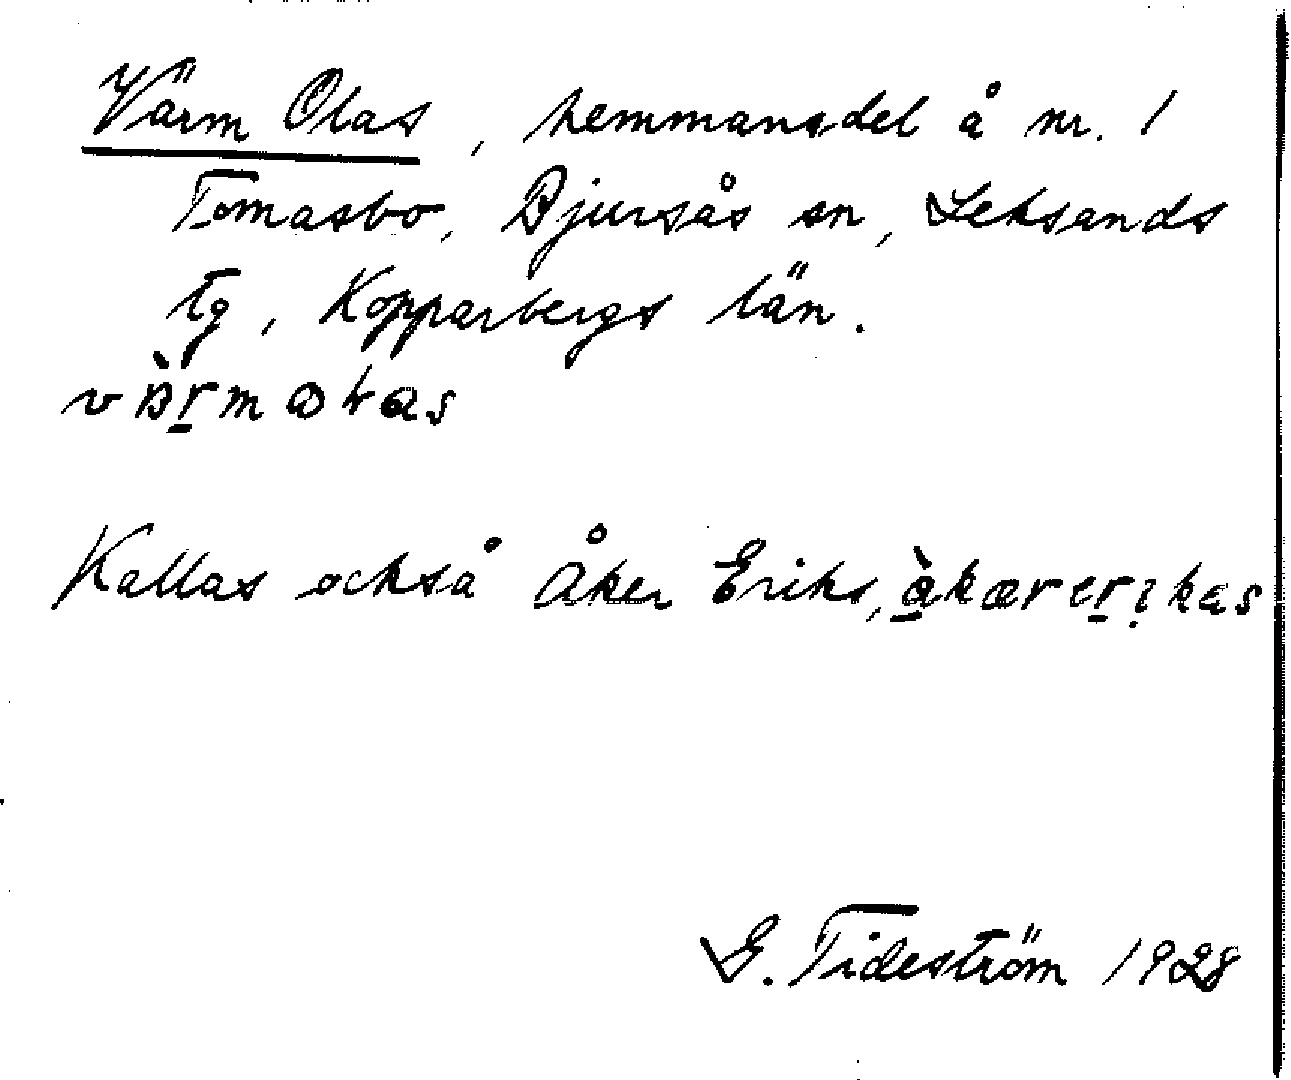 Värm Olas, hemmansdel å nr. 1
Tomasbo, Bjursås sn, Leksands
tg, Kopparbergs län.
Kallas också Åker Eriks,
G. Tideström 1928